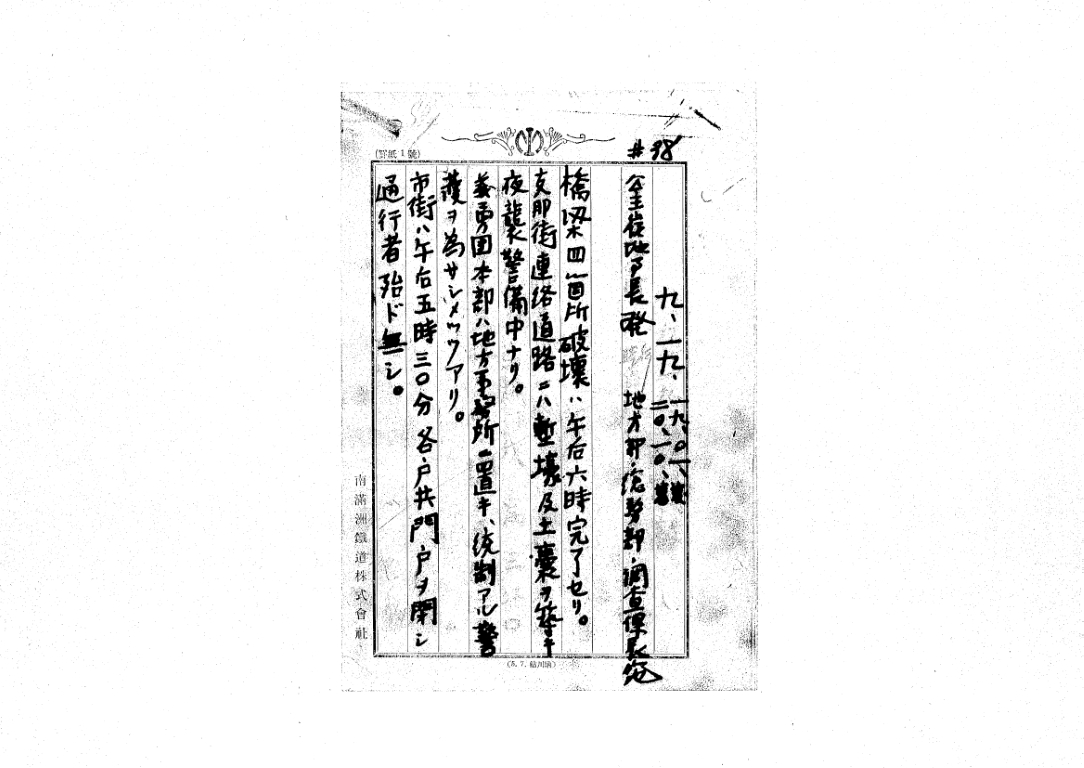 #98
(罫紙1號)
九、一九、一九、〇一、
二〇、一〇、
公主嶺地事長發 地方部、總務部、調査課長宛
橋梁四箇所破壞ハ午后六時完了セリ。
支那街連絡道路ニハ塹壕及土嚢ヲ築キ
夜襲警備中ナリ。
義勇団本部ハ地方事務所ニ置キ、統制アル警
護ヲ為サシメツツアリ。
市街ハ午后五時三〇分各戸共門戸ヲ閉シ
通行者殆ド無シ。
南滿洲鐵道株式會社